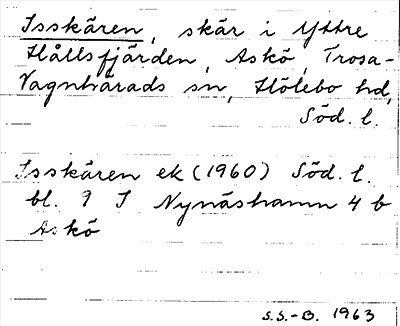 Isskären, skär i Yttre
Hållsfjärden, Askö, Trosa-
Vagnhärads sn, Hölebo hd,
Söd. l.
Isskären ek (1960) Söd. l.
bl. 9 I Nynäshamn 4 b
Askö
S.S.-B. 1963